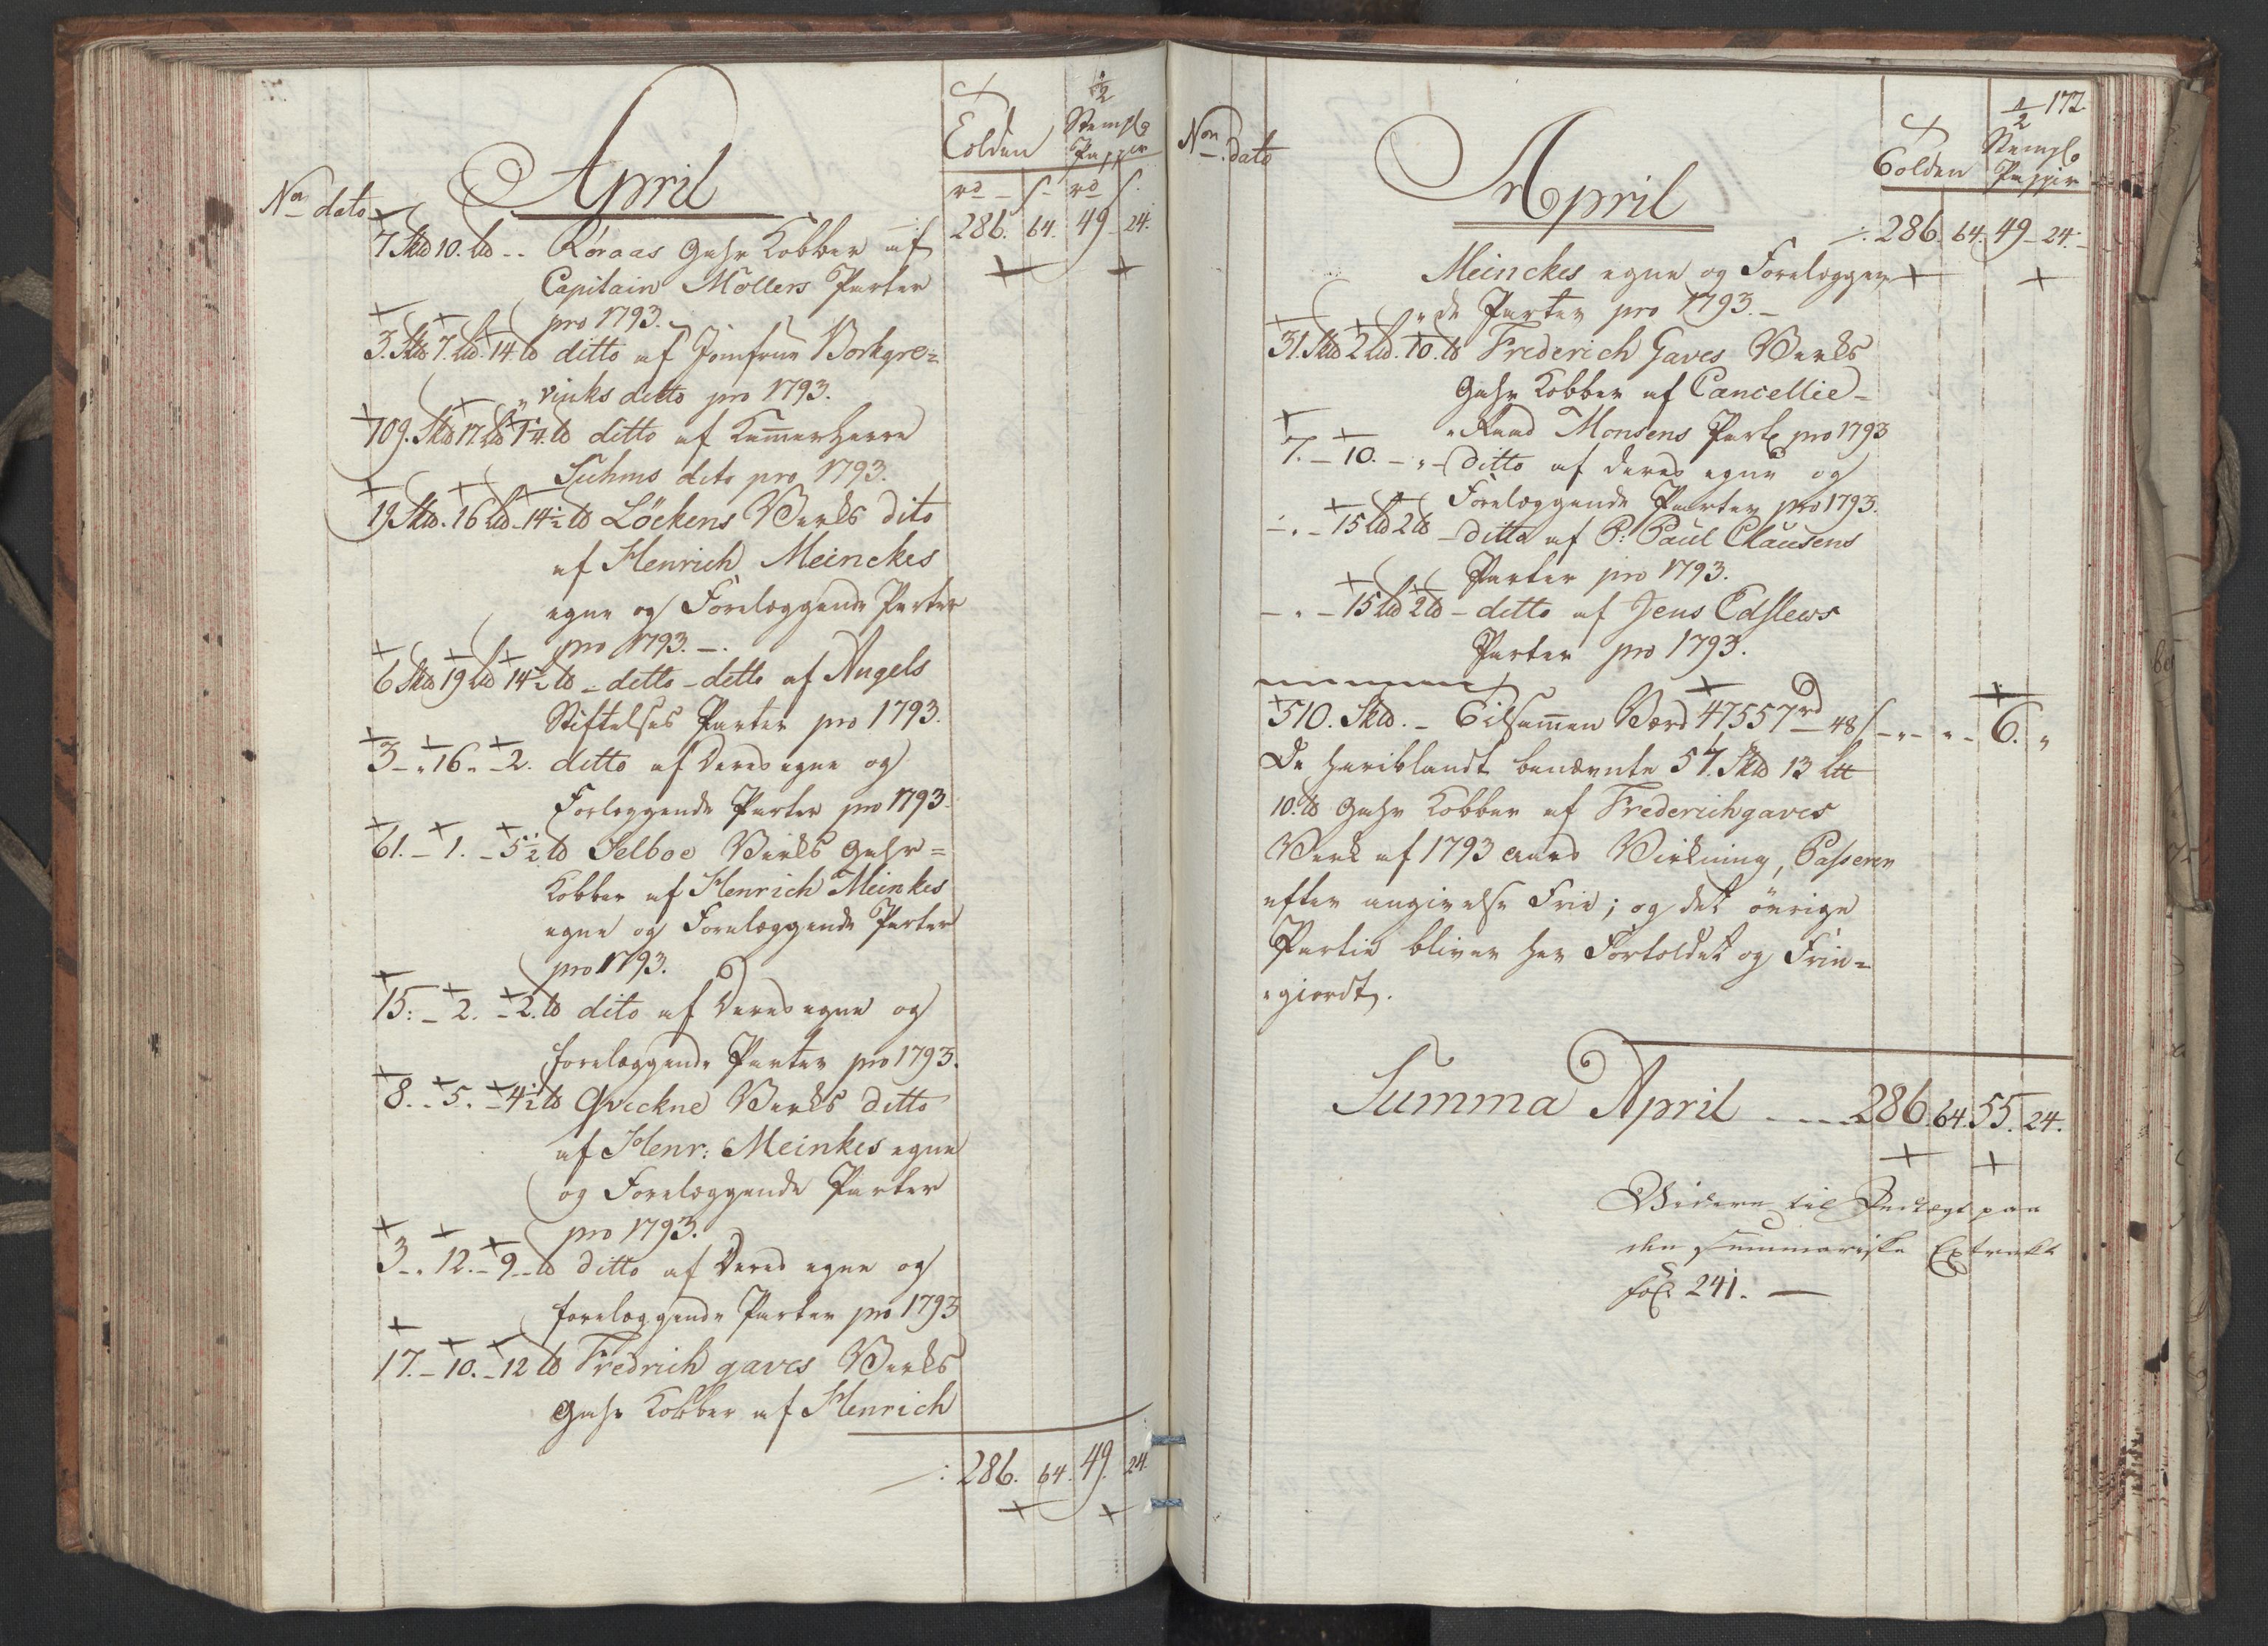 Tolden
1/2
Stempl.
Pappir
No dato
April
rd s rd s
7 Sk℔ 10. L℔ -- Röraas Gahr Kobber af 286. 64. 49. 24.
Capitain Möllers Parter
pro 1793.
3. Sk℔ 7. L℔. 14. ℔ ditto af Jomfrue Borkgre=
"vinks ditto pro 1793.
109. Sk℔ 17. L℔ 14. ℔ ditto af Kammerherre
Suhms dito pro 1793.
19 Sk℔. 16 L℔ 14 1/2 ℔ Löckens Verks dito
af Henrich Meinckes
egne og Foreleggende Parter
pro 1793. -.
6 Sk℔ 19 L℔ 14 1/2 ℔ - ditto - ditto af Angels
Stiftelses Parter pro 1793.
3 - " 16. - 2. ditto af Deres egne og
Forleggende Parter pro 1793.
61. - 1. - 5 1/2 ℔ Selboe Verks Gahr=
Kobber af Henrich Meinkes
egne og Foreleggende Parter
pro 1793.
15: - 2. - 2. ℔ dito af Deres egne og
foreleggende Parter pro 1793.
8. - 5. - 4 1/2 ℔ Qvickne Verks ditto
af Henr: Meinkes egne
og Foreleggende Parter
pro 1793.
3 - " 12. - 9 - ℔ ditto af Deres egne og
foreleggende Parter pro 1793
17. - 10. - 12 ℔ Fredrich gaves Verks
Gahr Kobber af Henrich
: 286. 64. 49. 24.
172.
Non dato
April
Tolden
1/2
Stempl.
Pappir
: 286. 64. 49 - 24. -
Meinckes egne og Foreleggen
"de Parter pro 1793. -
31. Sk℔ 2 L℔. 10. ℔ Frederich Gaves Verks
Gahr Kobber af Cancellie-
"Raad Monsens Part pro 1793
7. - 10. - " - ditto af deres egne og
Foreleggende Parter pro 1793.
- " - 15 L℔ 2 ℔ - ditto af P: Paul Clausens
Parter pro 1793.
- " - 15 L℔ 2 ℔ - ditto af Jens
Parter pro 1793.
510. Sk℔. - Tilsammen Værd 47557 rd 48 s - " - " - 6. "
De heriblandt benævnte 57. Sk℔ 13 L℔
10. ℔ Gahr Kobber af Frederichgaves
Verk af 1793 Aars Virkning, Passerer
efter angivelse Frie; og det övrige
Partie bliver her Fortoldet og Frie=
"giordt.
Summa April - - - - 286. 64. 55. 24.
Videre til Indtægt paa
den summariske Extract
fol. 241. -